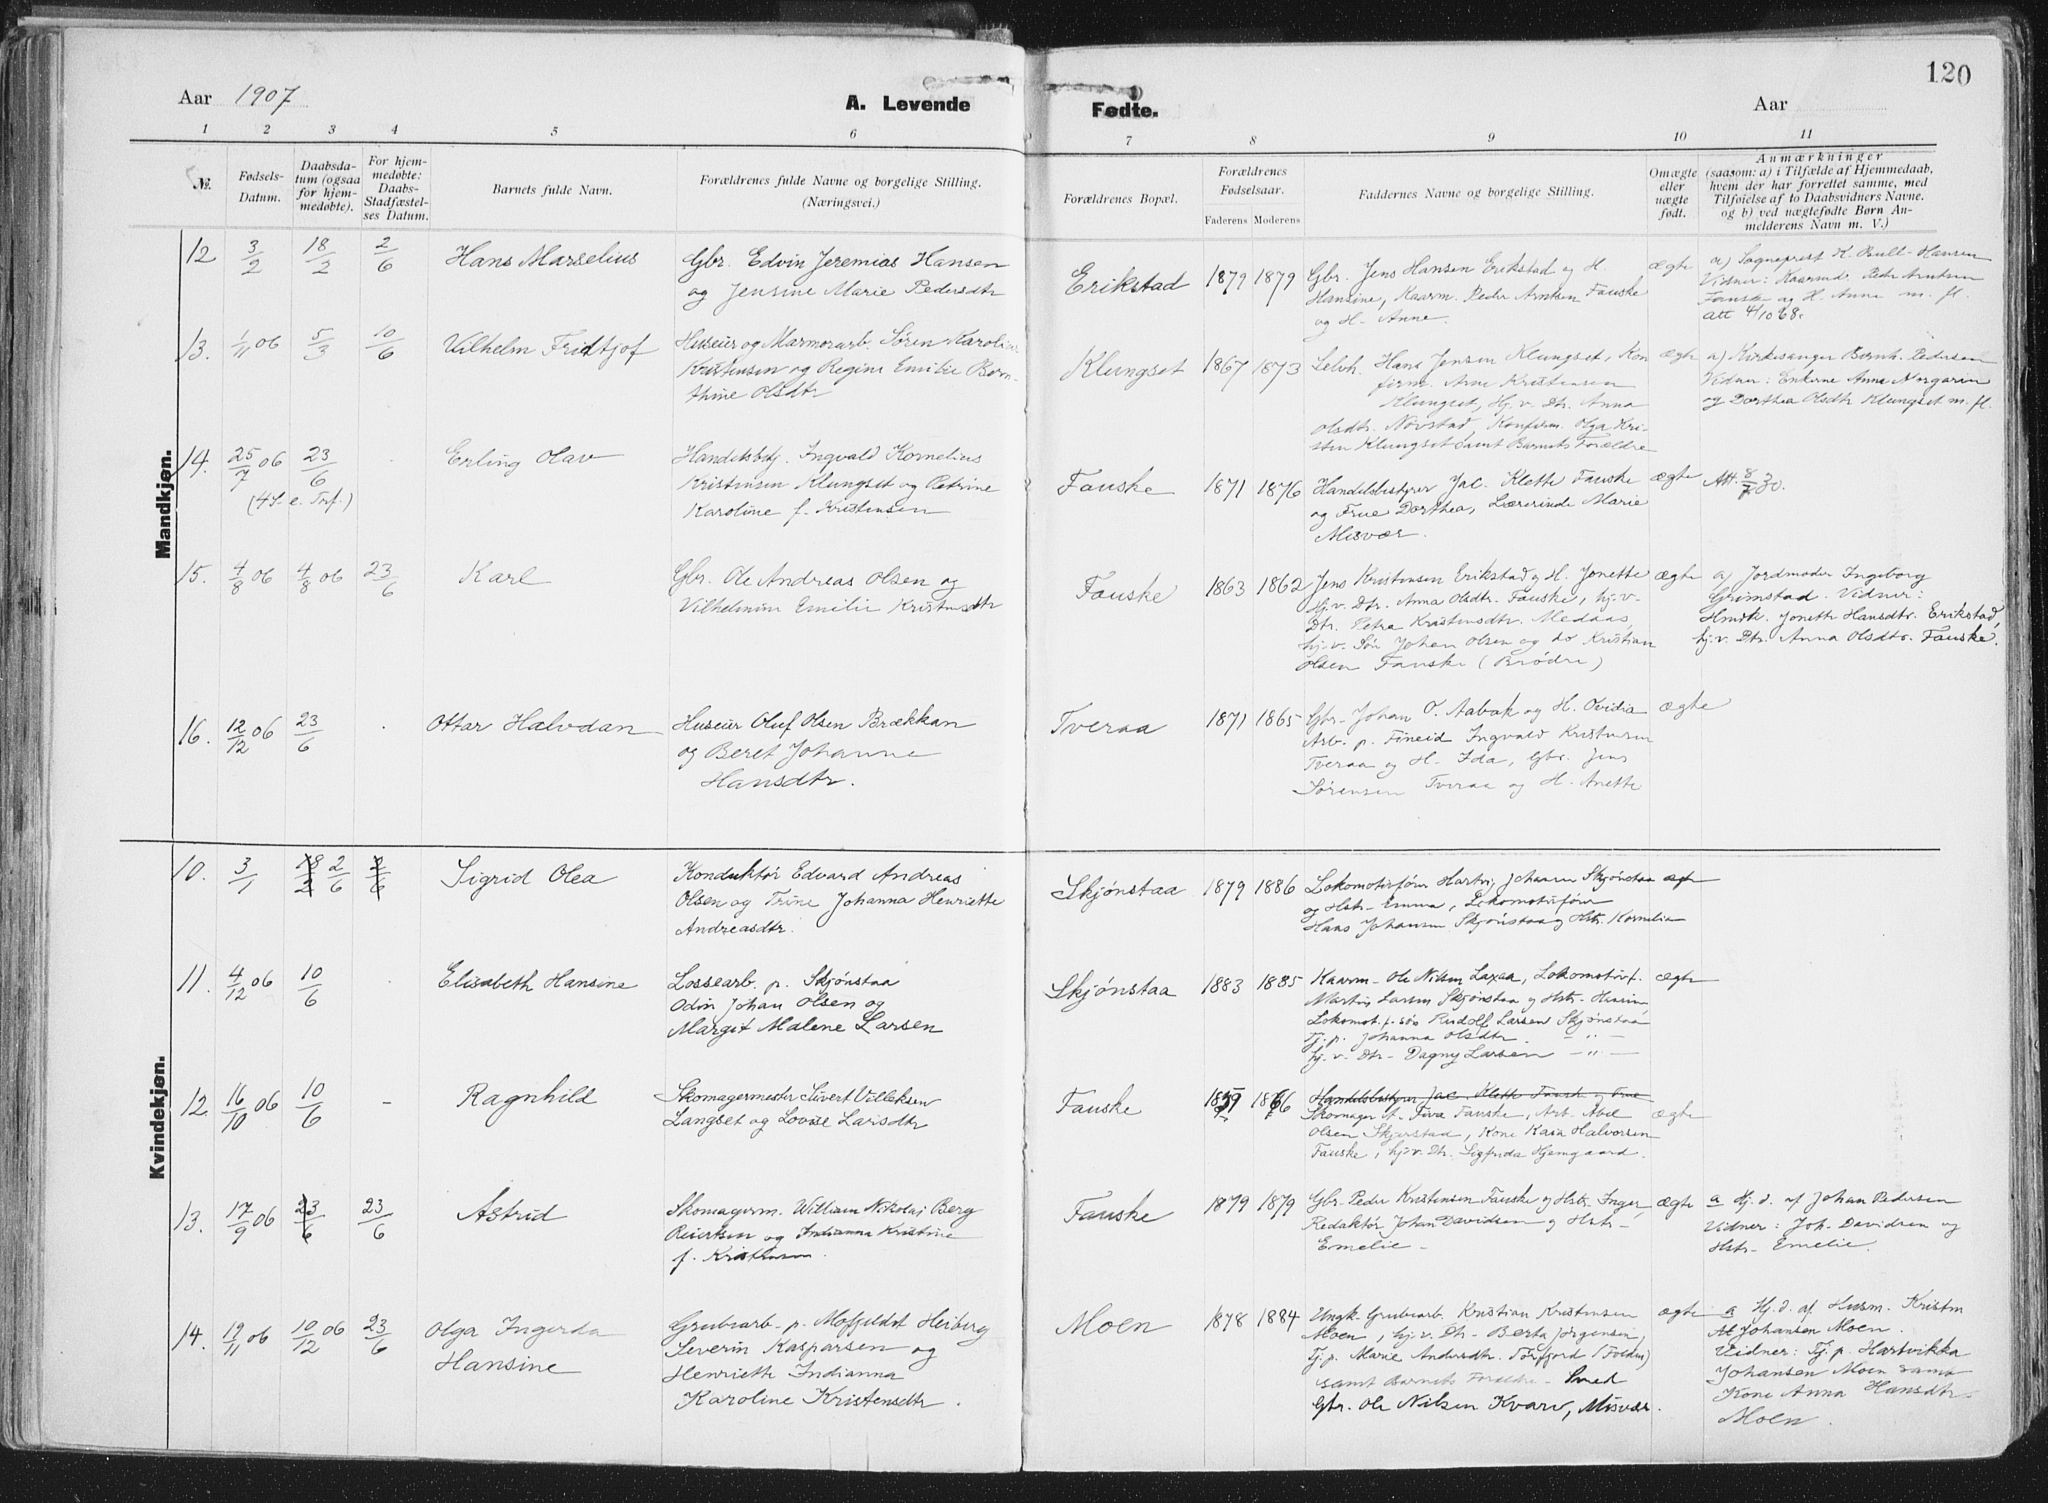 120
Aar 1907
A. Levende Fødte.
Aar
1 2 3 4 5 6 7 8 9 10 11
№.
Fødsels-
Datum.
Daabsda-
tum (ogsaa
for hjem-
medøbte).
For hjem-
medøbte:
Daabs-
Stadfæstel-
ses Datum.
Barnets fulde Navn.
Forældrenes fulde Navne og borgelige Stilling.
(Næringsvei.)
Forældrenes Bopæl.
Forældrenes
Fødselsaar.
Faderens Moderens
Faddernes Navne og borgelige Stilling.
Omægte
eller
uægte
født.
Anmærkninger
(saasom: a) i Tilfælde af Hjemmedaab,
hvem der har forrettet samme, med
Tilføielse af to Daabsvidners Navne.
og b) ved uægtefødte Børn An-
melderens Navn m. V.)
Mandkjøn.
12 3/2 18/2 2/6 Hans Marselius
Gbr. Edvin Jeremias Hansen
og Jensine Marie Pedersdtr
Erikstad 1879 1879
Gbr. Jens Hansen Erikstad og H.
Hansine, Kaarm. Peder Arntsen Fauske
og H. Anne.
ægte
a) Sogneprest K. Bull-Hansen
Vidner: Kaarmd. Peder Arntsen
Fauske og H. Anne m. fl.
Att 4/10 68.
13. 1/11 06 5/3 10/6 Vilhelm Fridtjof
Huseier og Marmorarb. Søren Karolius
Kristensen og Regine Emilie Bern-
thine Olsdtr
Klungset 1867 1873
Selvh. Hans Jensen Klungset, Kon
firm. Arne Kristensen
Klungset, Hj. v. Dtr. Anna
Olsdtr. Novstad, Konfirm. Olga Kri-
stin Klungset samt Barnets Forældre
ægte
a) Kirkesanger Bernh. Pedersen
Vidner: Enkerne Anna Norgarin
og Dorthea Olsdtr Klungset m. fl.
14. 25/7 06 23/6 Erling Olav
(4S. e. Trf.)
Handelsbstj. Ingvald Kornelius
Kristensen Klungset og Petrine
Karoline f. Kristensen
Fauske 1871 1876
Handelsbestyrer Jac. Kletti Fauske
og Frue Dorthea, Lærerinde Marie
Misvær.
ægte
Att. 8/7 30.
15. 4/8 06 4/8 06 23/6 Karl
Gbr. Ole Andreas Olsen og
Vilhelmine Emilie Kristensdtr
Fauske 1863 1862
Jens Kristensen Erikstad og H. Jonette
Hj. v. Dtr. Anna Olsdtr. Fauske, hj. v.
Dtr. Petra Kristensdtr. Medaas,
hj. v. Søn Johan Olsen og do Kristian
Olsen Fauske (Brødre)
ægte
a) Jordmoder Ingeborg
Grimstad. Vidner:
Hmdk. Jonette Hansdtr. Erikstad,
hj. v. Dtr. Anna Olsdtr. Fauske.
16. 12/12 06 23/6 Ottar Halvdan
Huseier Oluf Olsen Brækkan
og Beret Johanne
Hansdtr.
Tveraa 1871 1865
Gbr. Johan O. Aabak og H. Ovidia
Arb. p. Fineid Ingvald Kristensen
Tveraa og H. Ida, Gbr. Jens
Sørensen Tveraa og H. Anette
ægte
Kvindekjøn.
10. 3/1 18/2 2/6 2/6 Sigrid Olea
Konduktør Edvard Andreas
Olsen og Trine Johanna Henriette
Andreasdtr.
Skjønstaa 1879 1886
Lokomotivfører Hartvig Johansen Skjønstaa ægte
og Hstr. Emma, Lokomotivfører
Hans Johansen Skjønstaa og Hstr. Kornelia
11. 4/12 06 10/6 Elisabeth Hansine
Lossearb. p. Skjønstaa
Odin Johan Olsen og
Margit Malene Larsen
Skjønstaa 1883 1885
Kaarm. Ole Nilsen Laxaa, Lokomotivf.
Martin Larsen Skjønstaa og Hstr.
Lokomot. f. søn Rudolf Larsen Skjønstaa
Tj. p. Johanna Olsdtr. — " —
hj. v. Dtr. Dagny Larsen — " —
ægte
12. 16/10 06 10/6 - Ragnhild
Skomagermester Sivert Villeksen
Langset og Lovise Larsdtr
Fauske 1859 1866
Handelsbestyrer Jac. Kletti Fausk og Frue
Skomager Fauske, Arb. Abel
Olsen Skjerstad, Kone Kaia Halvorsen
Fauske, hj. v. Dtr. Sigfrida Hjemgaard.
ægte
13. 17/9 06 23/6 23/6 Astrid
Skomagerm. William Nikolaj Berg
Reiertsen og Indianna Kristine
f. Kristensen.
Fauske 1879 1879
Gbr. Peder Kristensen Fauske og Hstr. Inger
Redaktør Johan Davidsen og Hstr.
Emelie.
ægte
a Hj. d. af Johan Pedersen
Vidner: Joh. Davidsen og
Hstr. Emelie.
14. 19/11 06 10/12 06 23/6 Olga Ingerda
Hansine
Grubearb. p. Mofjeldet Heiberg
Severin Kaspersen og
Henriette Indianna
Karoline Kristensdtr.
Moen 1878 1884
Ungk. Grubearb. Kristian Kristensen
Moen, hj. v. Dtr. Berta Jørgensen,
Tj. p. Marie Andersdtr. Torfjord (Folden)
samt Barnets Forældre. Smed
Gbr. Ole Nilsen Kvarv, Misvær.
ægte
a Hj. d. af Husm. Kristen
At Johansen Moen.
Vidner: Tj. p. Hartvikka
Johansen Moen samt
Kone Anna Hansdtr.
Moen.